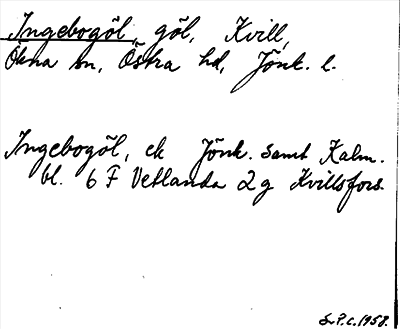 Ingebogöl, göl, Kvill,
Ökna sn, Östra hd, Jönk. l.
Ingebogöl, ek Jönk. samt Kalm.
bl. 6 F Vetlanda 2 g Kvillsfors.
S.P.C. 1958.